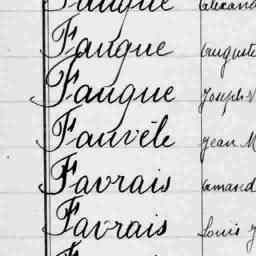 Faugue Alexand
Faugue Auguste
Faugue Joseph
Fauvéle Jean M
Favrais Amand
Favrais Louis J